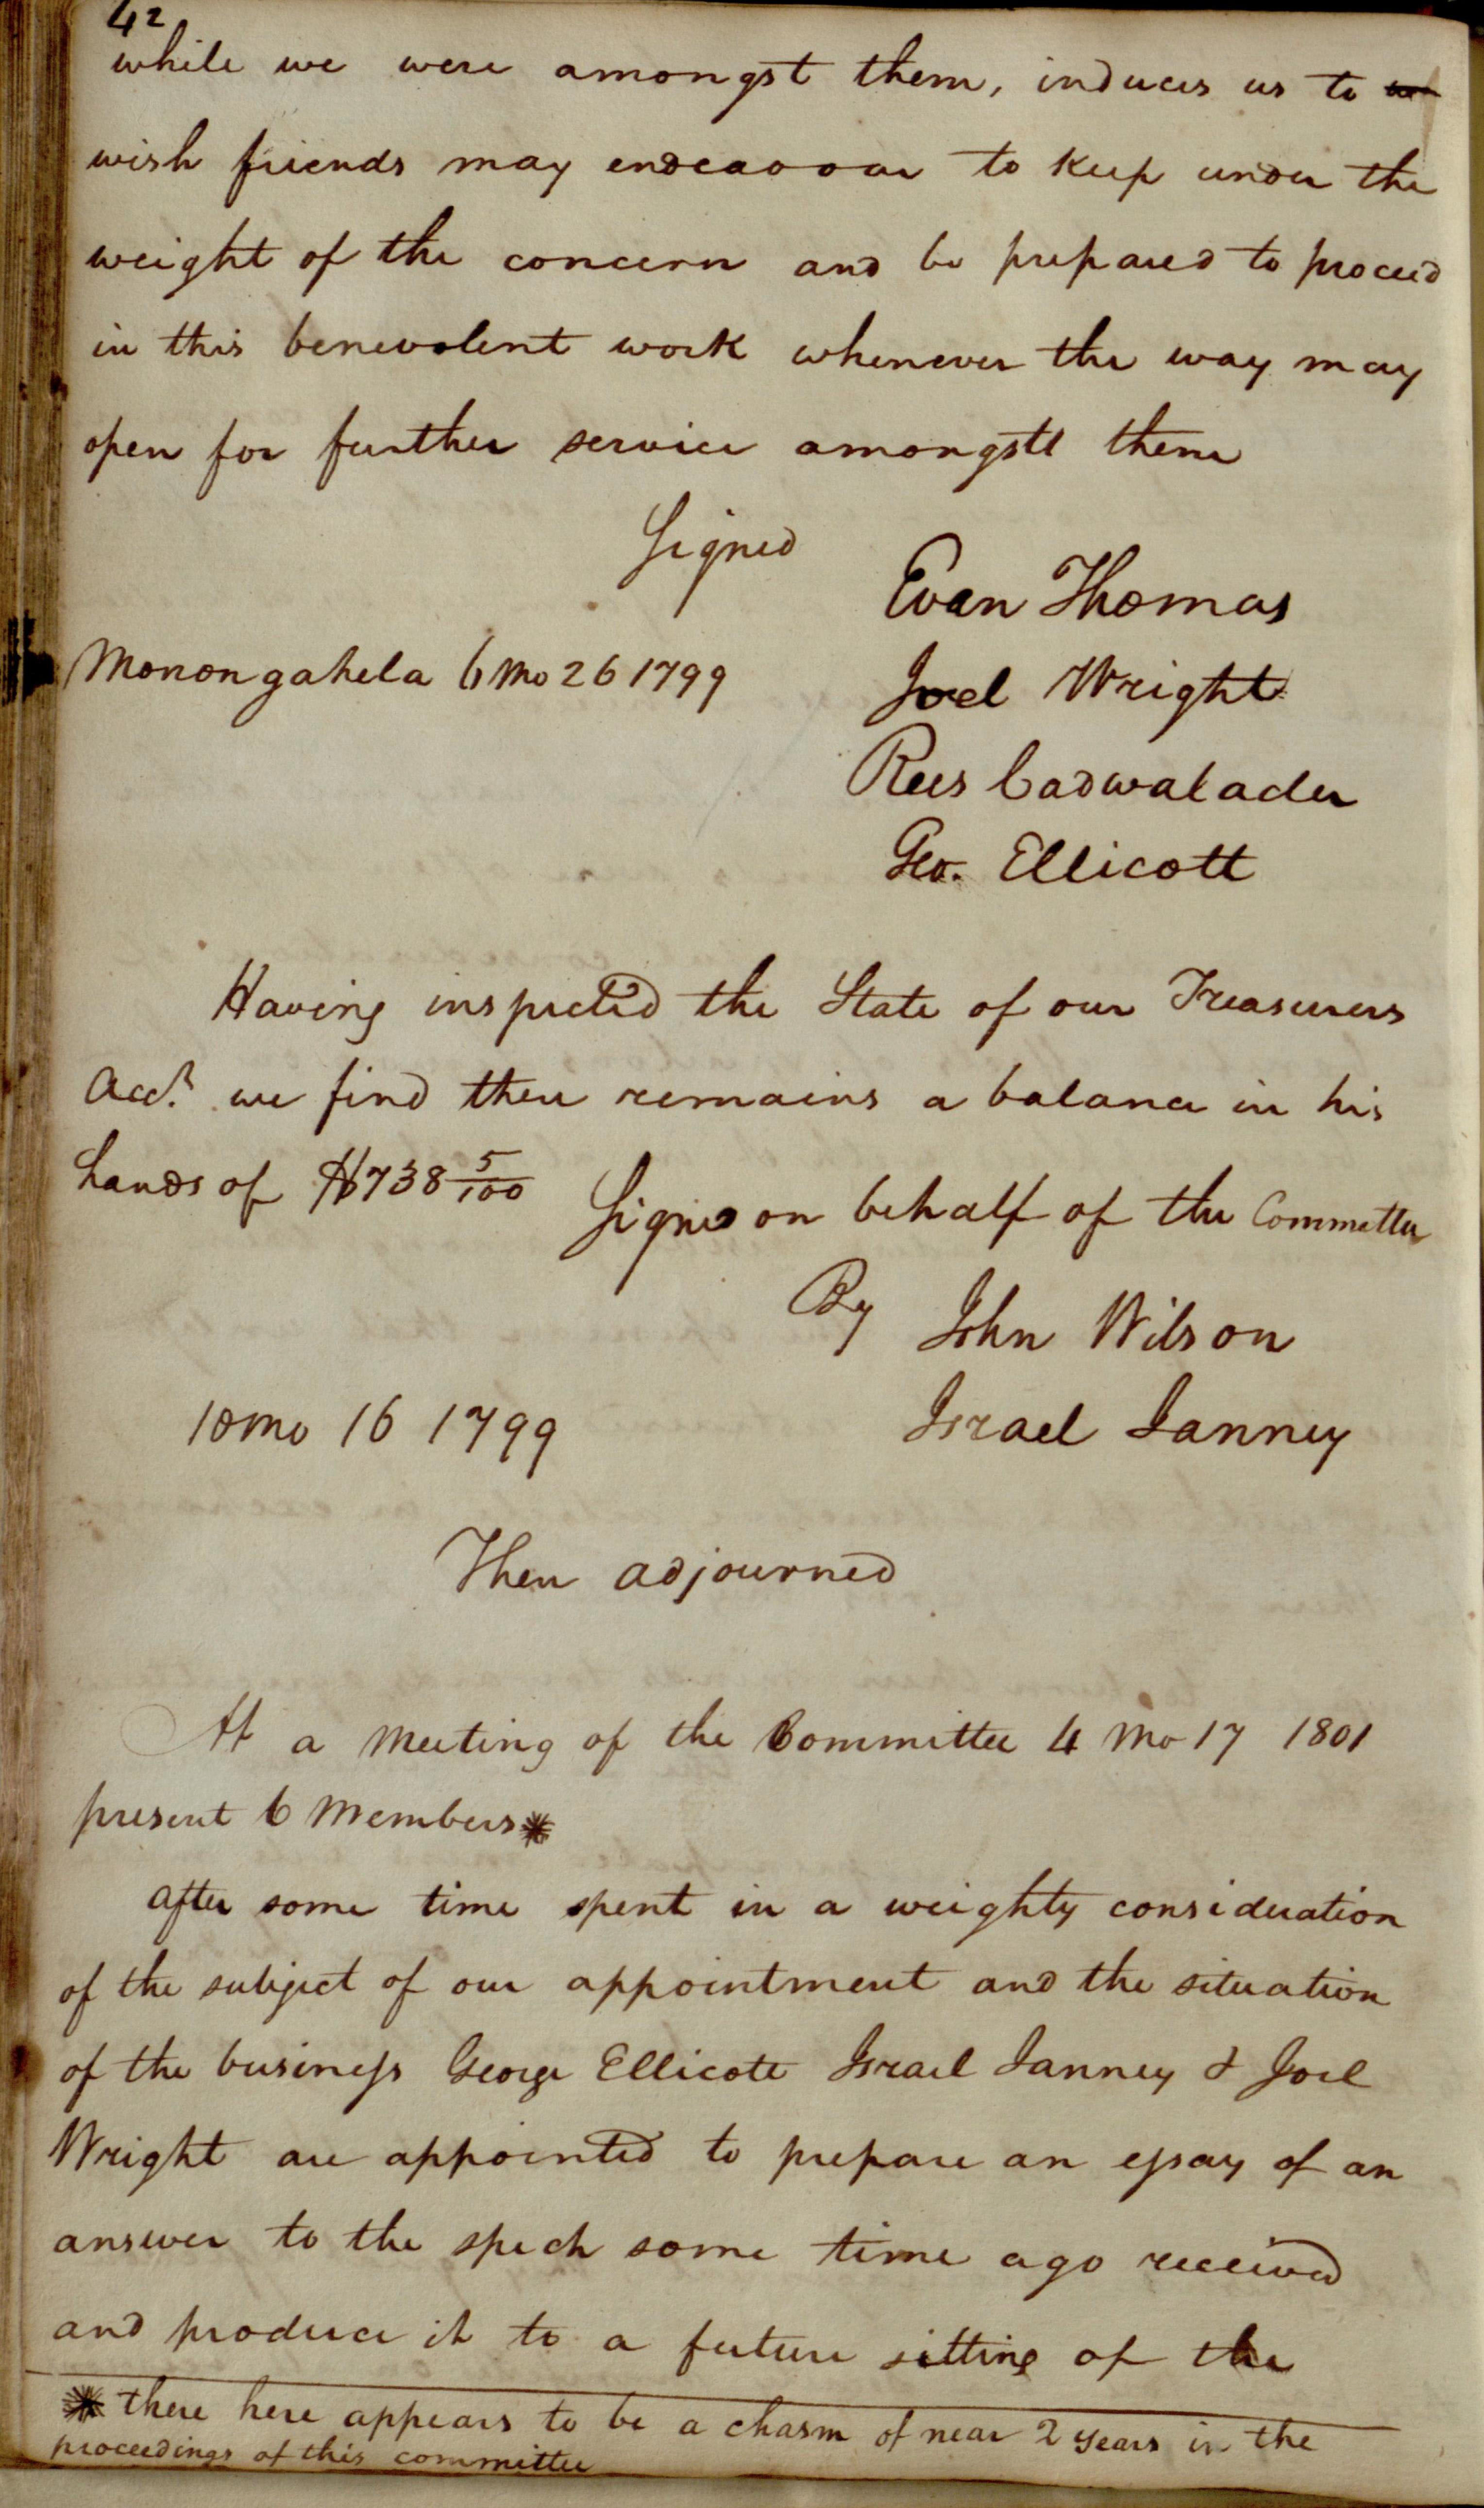 42
while we were amongst them, induces us to
wish friends may endeavour to keep under the
weight of the concern and be prepared to proceed
in this benevolent work whenever the way may
open for further service amongstt them
Signed
Evan Thomas
Monongahela 6 mo 26 1799
Joel Wright
Rees Cadwalader
Geo. Ellicott
Having inspected the State of our Treasurers
Acct. we find there remains a balance in his
hands of $738 5/100
Signed on behalf of the Committee
By John Wilson
10 mo 16 1799
Israel Janney
Then adjourned
At a Meeting of the Committee 4 mo 17 1801
present 6 Members*
after some time spent in a weighty consideration
of the subject of our appointment and the situation
of the business George Ellicott Israel Janney & Joel
Wright are appointed to prepare an essay of an
answer to the speech some time ago received
and produce it to a future sitting of the
* there here appears to be a chasm of near 2 years in the
proceedings of this committee